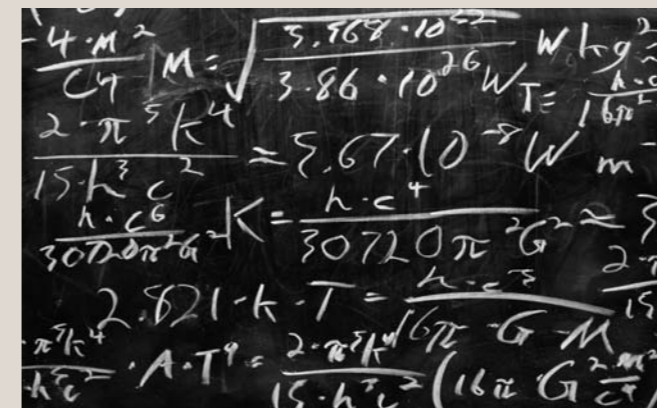 -4·M² / C4 M = √ 3.968·10²² / 3.86·10²⁶ W W kg²
T = h·c / 16π²
2·π⁵k⁴ / 15·h³c² = 5.67·10⁻⁸ W m⁻
h·c⁶ / 30720π²G² K = h·c⁴ / 30720π²G² ≈ 3
2.821·k·T = h·c³ / 16π·G·M 2·π / 15
π⁵k⁴ / h³c² ·A·T⁴ = 2·π⁵k⁴ / 15·h³c² (16π·G²·M² / c⁴)